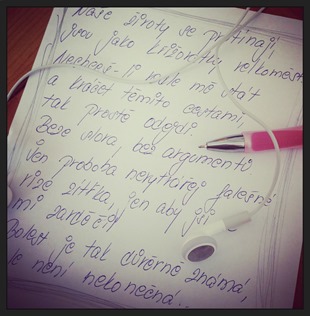 Naše životy se protínají
jsou jako křižovatky velkoměst
Nechceš-li vedle mě stát
a kráčet těmito cestami,
tak prostě odejdi.
Beze slova, bez argumentů
Jen proboha nevytvářej falešné
vize zítřka, jen aby jsi
mi zavděčil
Bolest je tak důvěrně známá,
le není nekonečná...